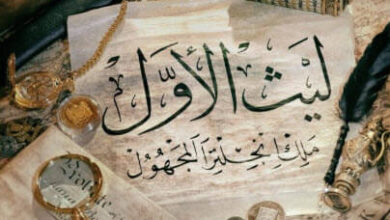 لَيْثُ الأَوَّل
مَلِكُ إِنْجِلْتِرَا المَجْهُولُ